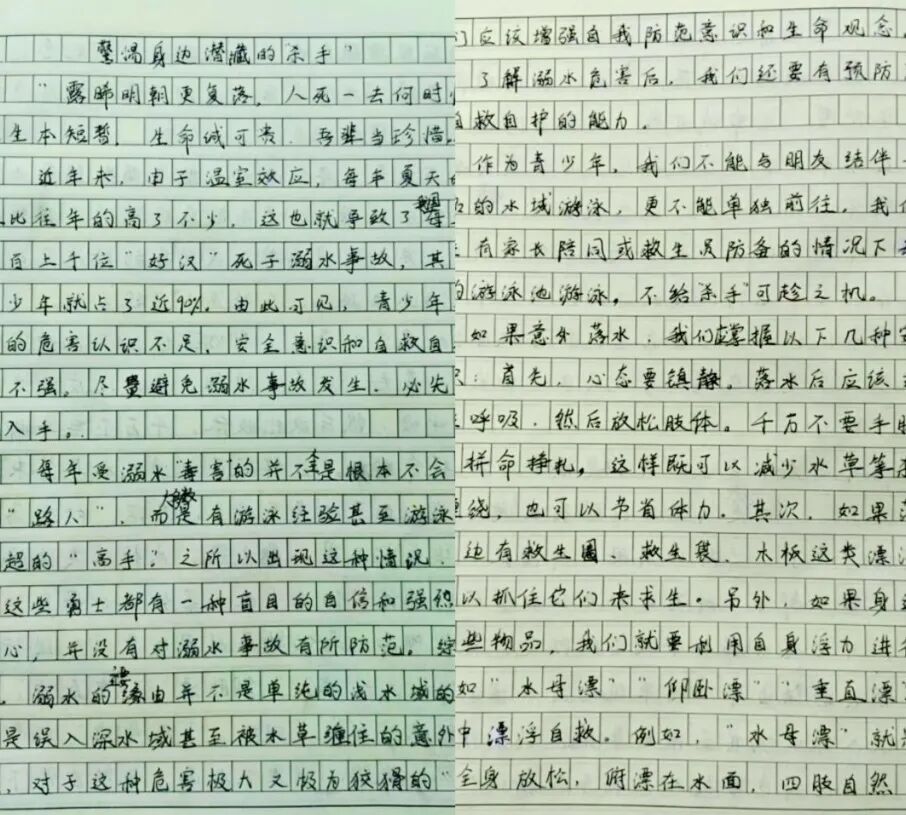 警惕身边潜藏的"杀手"
"露晞明朝更复落，人死一去何时
生本短暂，生命诚可贵，吾辈当珍惜。
近年来，由于温室效应，每年夏天
比往年的高了不少，这也就导致了我国每
百上千位"好汉"死于溺水事故，其
少年就占了近90%。由此可见，青少年
的危害认识不足，安全意识和自救自
不强。尽量避免溺水事故发生，必先
入手。
每年受溺水"毒害"的并不全是根本不会
"路人"，而大多数是有游泳经验甚至游泳
超的"高手"。之所以出现这种情况，
这些勇士都有一种盲目的自信和强烈
心，并没有对溺水事故有所防范。综
，溺水的主要缘由并不是单纯的浅水域的
是误入深水域甚至被水草缠住的意外
，对于这种危害极大又极为狡猾的"
们应该增强自我防范意识和生命观念。
了解溺水危害后，我们还要有预防
自救自护的能力。
作为青少年，我们不能与朋友结伴
的水域游泳，更不能单独前往。我们
有家长陪同或救生员防备的情况下
的游泳池游泳，不给"杀手"可趁之机。
如果意外落水，我们应掌握以下几种
：首先，心态要镇静。落水后应该
呼吸，然后放松肢体。千万不要手脚
拼命挣扎，这样既可以减少水草等
绕，也可以节省体力。其次，如果
边有救生圈、救生袋、木板这类漂
以抓住它们来求生。另外，如果身
些物品，我们就要利用自身浮力进行
如"水母漂""仰卧漂""垂直漂"
中漂浮自救。例如，"水母漂"就
全身放松，俯漂在水面，四肢自然